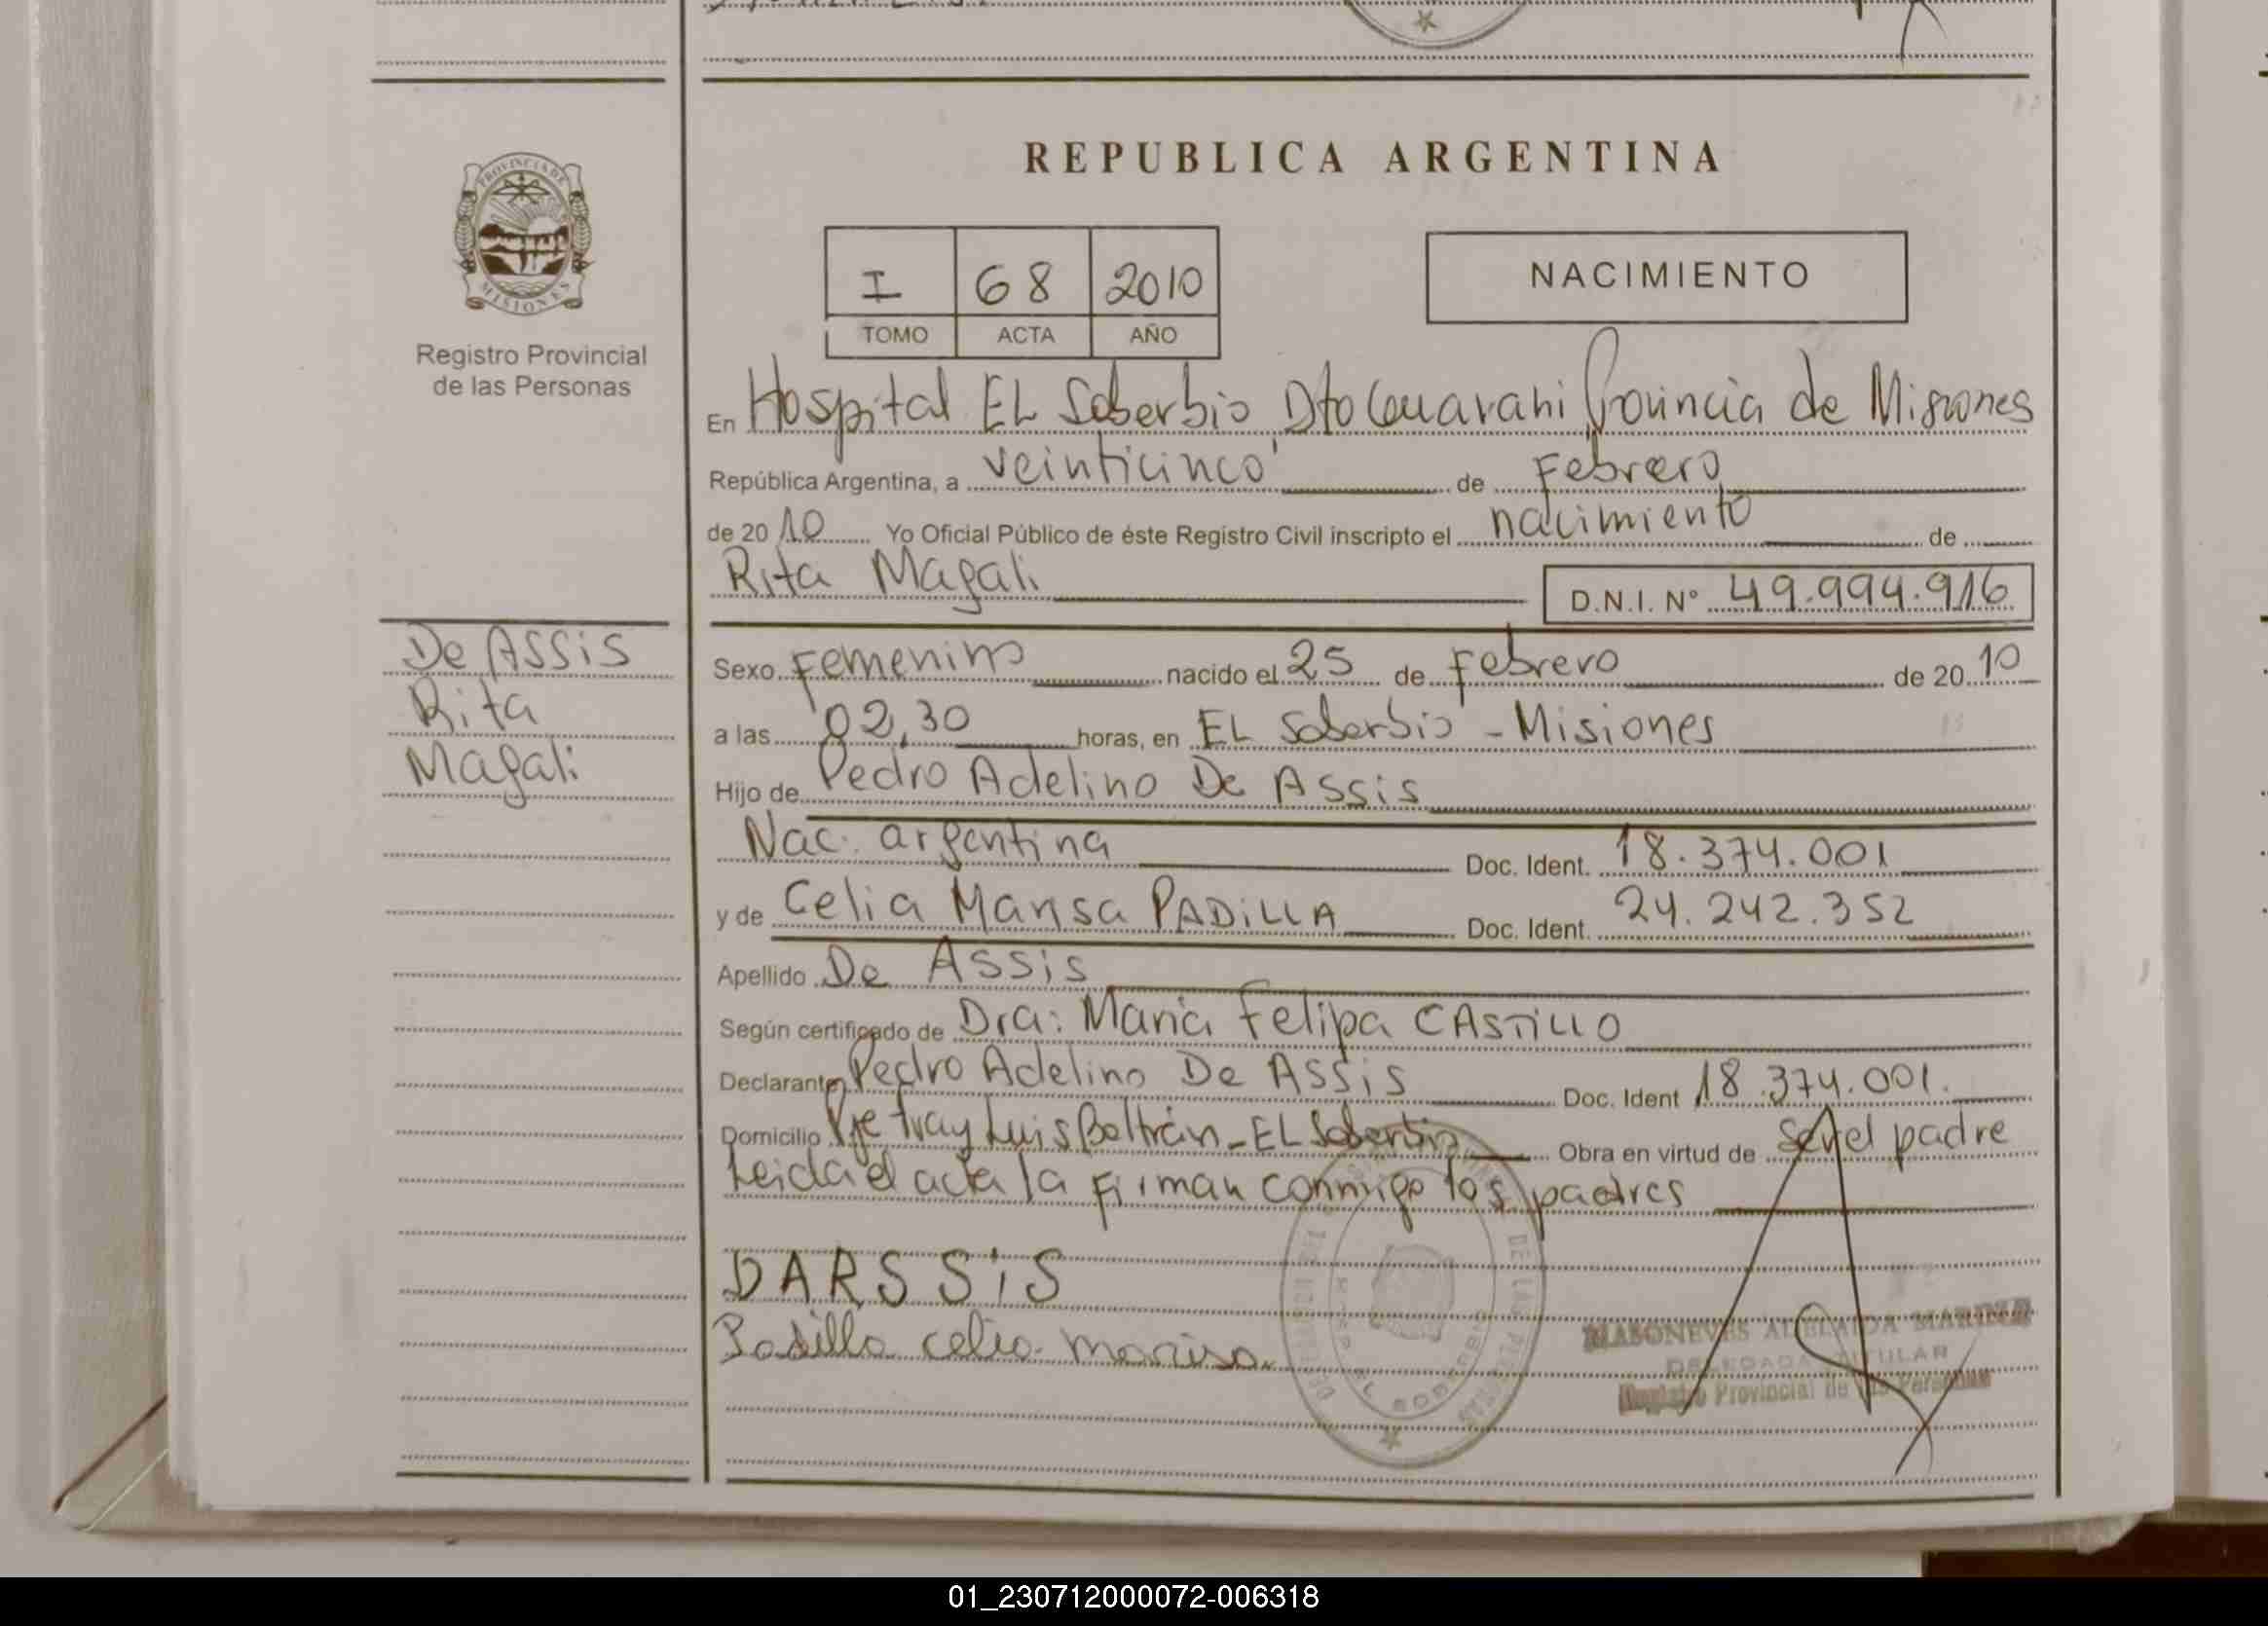 REPUBLICA ARGENTINA
PROVINCIA DE
MISIONES
Registro Provincial
de las Personas
I 68 2010
TOMO ACTA AÑO
NACIMIENTO
En Hospital EL Soberbio Dto Guarani Provincia de Misiones
República Argentina, a veinticinco de Febrero
de 2010 Yo Oficial Público de éste Registro Civil inscripto el nacimiento de
Rita Magali D.N.I. Nº 49.994.916
De Assis
Rita
Magali
Sexo Femenino nacido el 25 de Febrero de 2010
a las 02,30 horas, en EL Soberbio - Misiones
Hijo de Pedro Adelino De Assis
Nac. argentina Doc. Ident. 18.374.001
y de Celia Marisa PADILLA Doc. Ident. 24.242.352
Apellido De Assis
Según certificado de Dra: Maria Felipa CASTILLO
Declarante Pedro Adelino De Assis Doc. Ident 18.374.001.
Domicilio Pje Fray Luis Beltrán - EL Soberbio Obra en virtud de ser el padre
Leida el acta la firman conmigo los padres
DARSSiS
Padilla celia marisa
ADELAIDA
DELEGADA TITULAR
Registro Provincial de las Personas
01_230712000072-006318